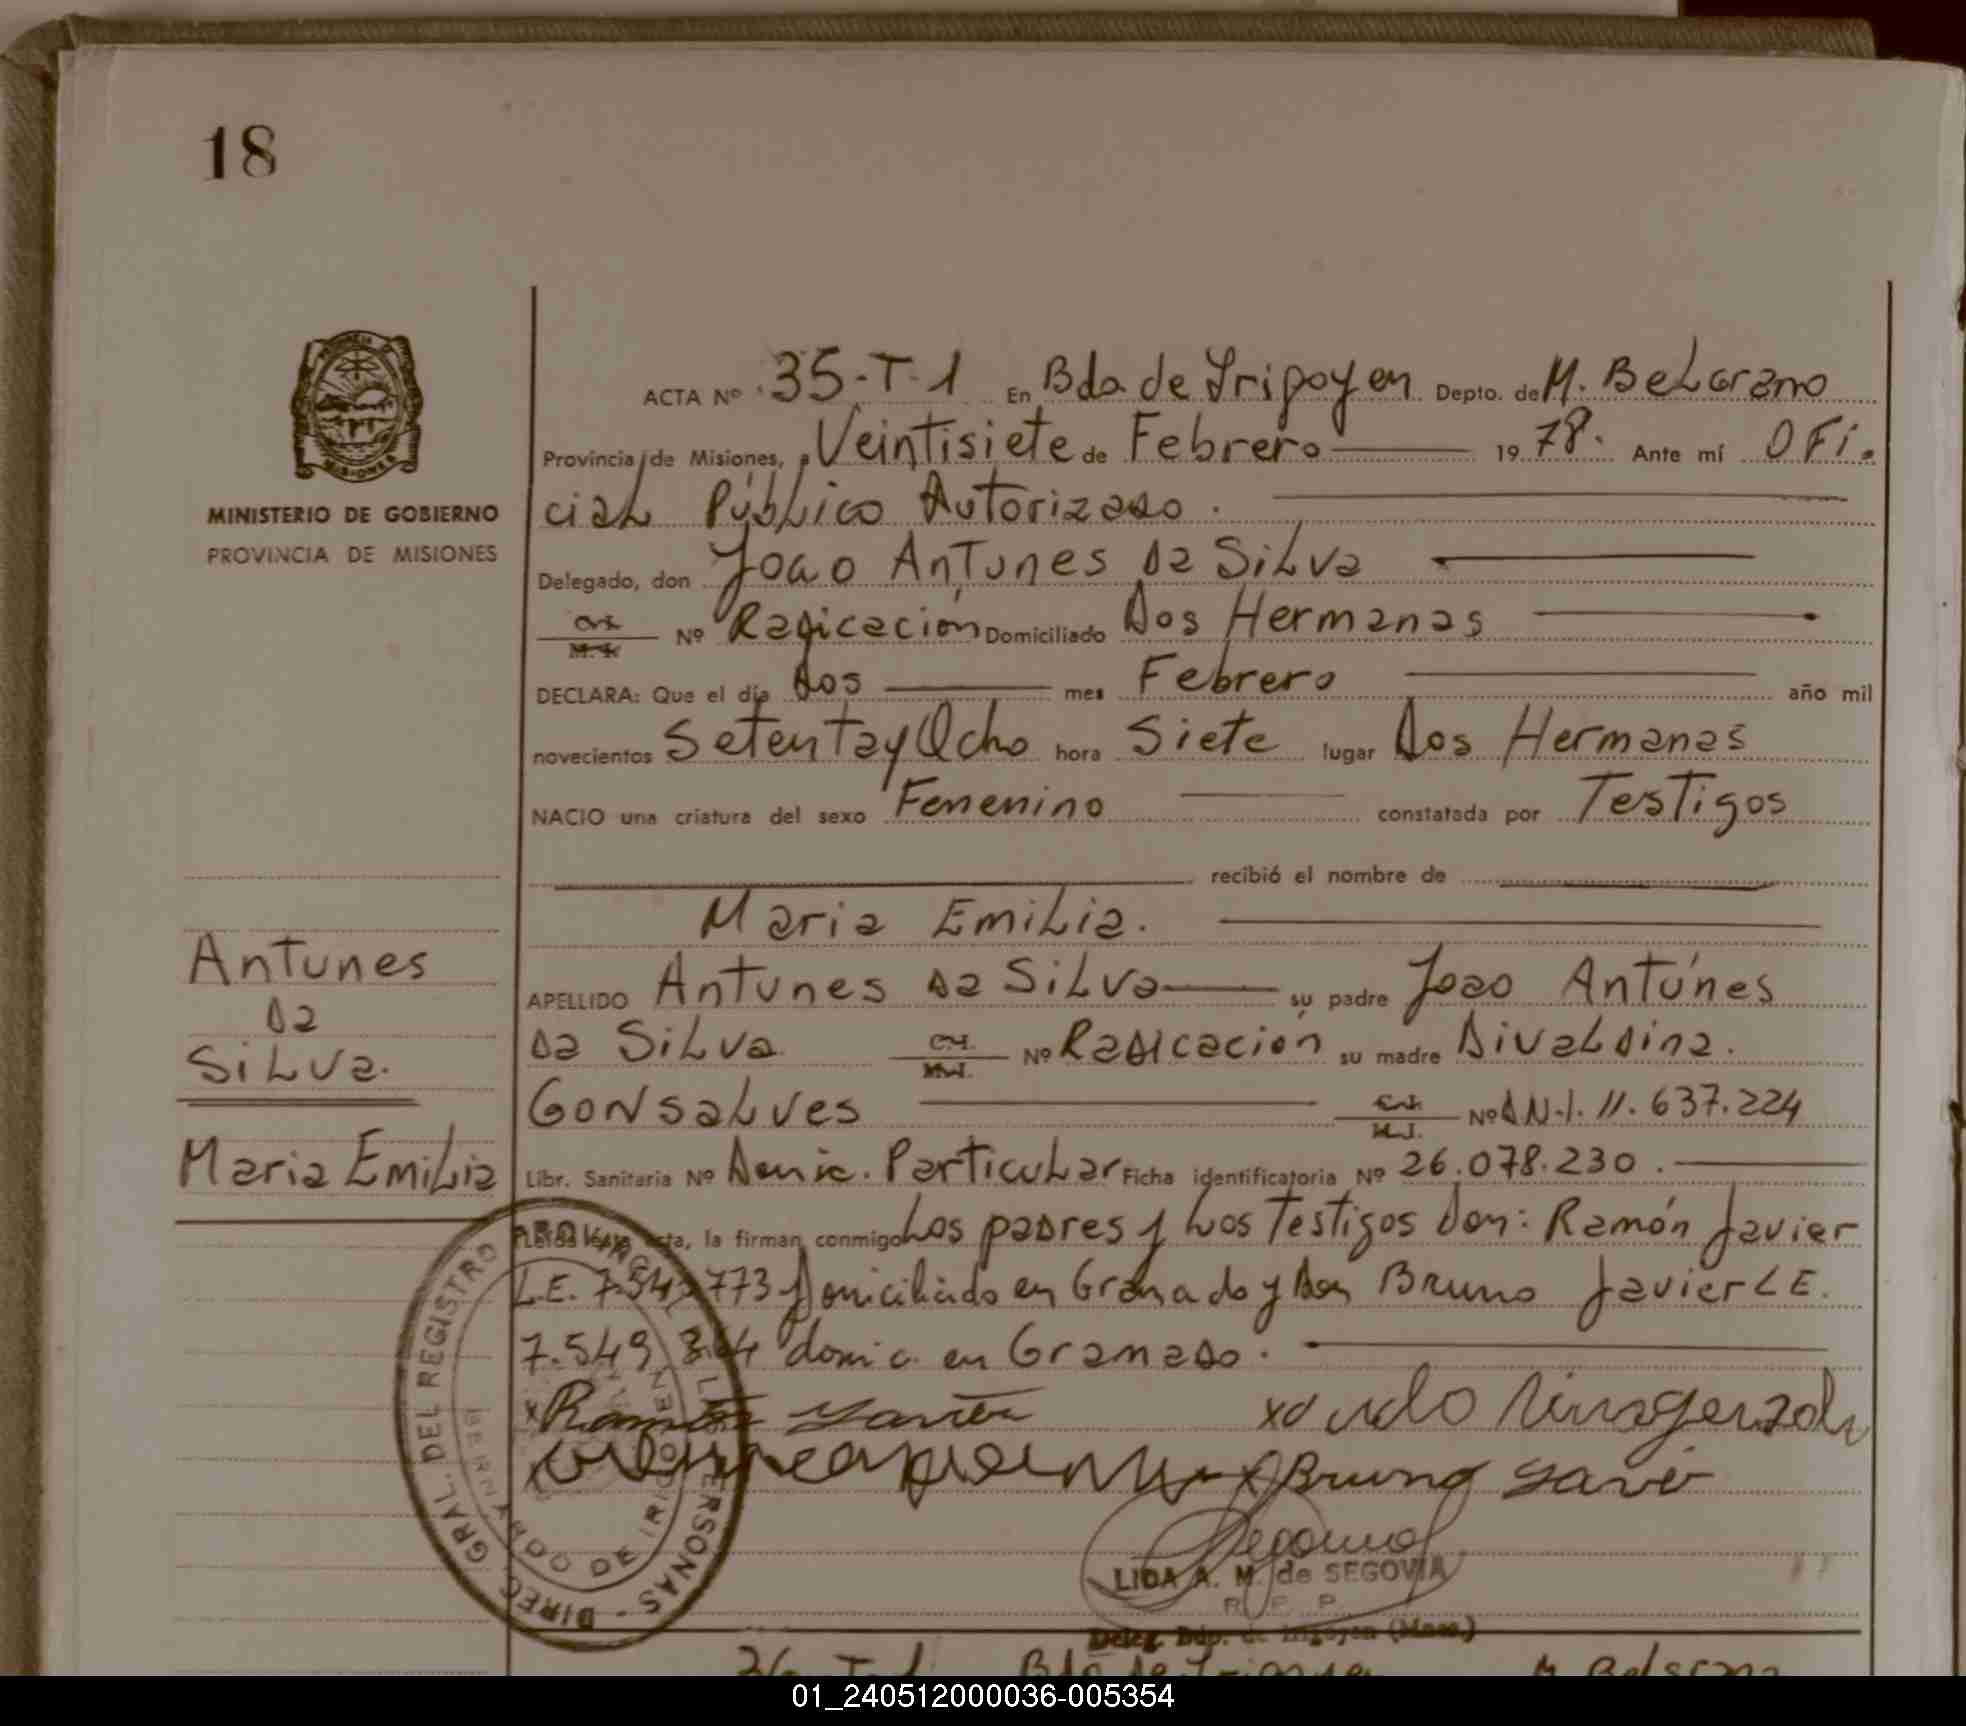 18
ACTA Nº 35-T-1 En Bda de Yripoyen Depto. de M. Belgrano
Provincia de Misiones, a Veintisiete de Febrero 1978. Ante mí OFi.
cial Público Autorizado.
MINISTERIO DE GOBIERNO
PROVINCIA DE MISIONES
Delegado, don Joao Antunes da Silva
Nº Radicación Domiciliado Dos Hermanas
DECLARA: Que el día Dos mes Febrero año mil
novecientos Setenta y Ocho hora Siete lugar Dos Hermanas
NACIO una criatura del sexo Femenino constatada por Testigos
recibió el nombre de
Maria Emilia.
Antunes
da
Silva.
Maria Emilia
APELLIDO Antunes da Silva su padre Joao Antúnes
da Silva Nº Radicación su madre Divaldina.
Gonsalves Nº D.N.I. 11.637.224
Libr. Sanitaria Nº Domic. Particular Ficha identificatoria Nº 26.078.230.
la firman conmigo Los padres y Los Testigos Don: Ramón Javier
L.E. 773 Domiciliado en Granado y Don Bruno Javier L E.
7.549 domic. en Granado.
x Ramon
x Bruno
LIDA A. M. de SEGOVIA
R. P. P.
Deleg. Bdo. de Irigoyen (Mnes.)
DIREC. GRAL. DEL REGISTRO PERSONAS
BERNARDO DE IRIGOYEN
36-T-1 Bda de M. Belgrano
01_240512000036-005354